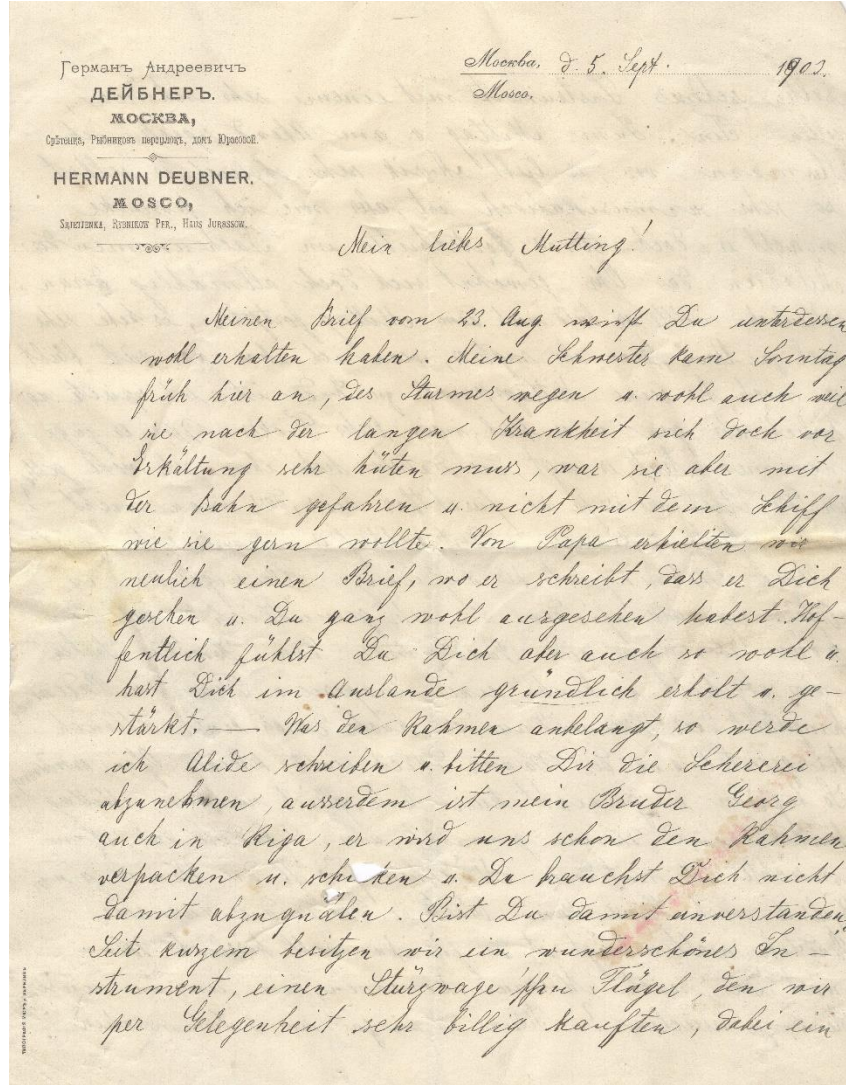 Германъ Андреевичъ
ДЕЙБНЕРЪ.
МОСКВА,
Срѣтенка, Рыбниковъ переулокъ, домъ Юрасовой.
HERMANN DEUBNER,
MOSCO,
Srjetjenka, Rybnikow Per., Haus Jurassow.
Москва, d. 5. Sept. 1903.
Mosco,
Mein liebs Mutting!
Meinen Brief vom 23. Aug. wirst Du unterdessen
wohl erhalten haben. Meine Schwester kam Sonntag
früh hier an, des Sturmes wegen u. wohl auch weil
sie nach der langen Krankheit sich doch vor
Erkältung sehr hüten muss, war sie aber mit
der Bahn gefahren u. nicht mit dem Schiff
wie sie gern wollte. Von Papa erhielten wir
neulich einen Brief, wo er schreibt, dass er Dich
gesehen u. Du ganz wohl ausgesehen habest. Hof-
fentlich fühlst Du Dich aber auch so wohl u.
hast Dich im Auslande gründlich erholt u. ge-
stärkt. — Was den Rahmen anbelangt, so werde
ich Alide schreiben u. bitten Dir die Schererei
abzunehmen, ausserdem ist mein Bruder Georg
auch in Riga, er wird uns schon den Rahmen
verpacken u. schicken u. Du brauchst Dich nicht
damit abzuquälen. Bist Du damit einverstanden?
Seit kurzem besitzen wir ein wunderschönes In-
strument, einen Stürzwage'schen Flügel, den wir
per Gelegenheit sehr billig kauften, dabei ein